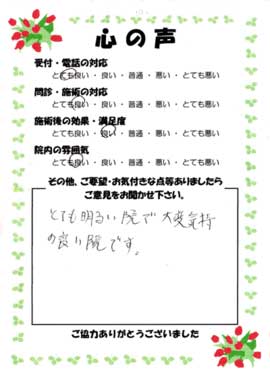 心の声
受付・電話の対応
とても良い・良い・普通・悪い・とても悪い
問診・施術の対応
とても良い・良い・普通・悪い・とても悪い
施術後の効果・満足度
とても良い・良い・普通・悪い・とても悪い
院内の雰囲気
とても良い・良い・普通・悪い・とても悪い
その他、ご要望・お気付きな点等ありましたら
ご意見をお聞かせ下さい。
とても明るい院で大変気持
の良い院です。
ご協力ありがとうございました